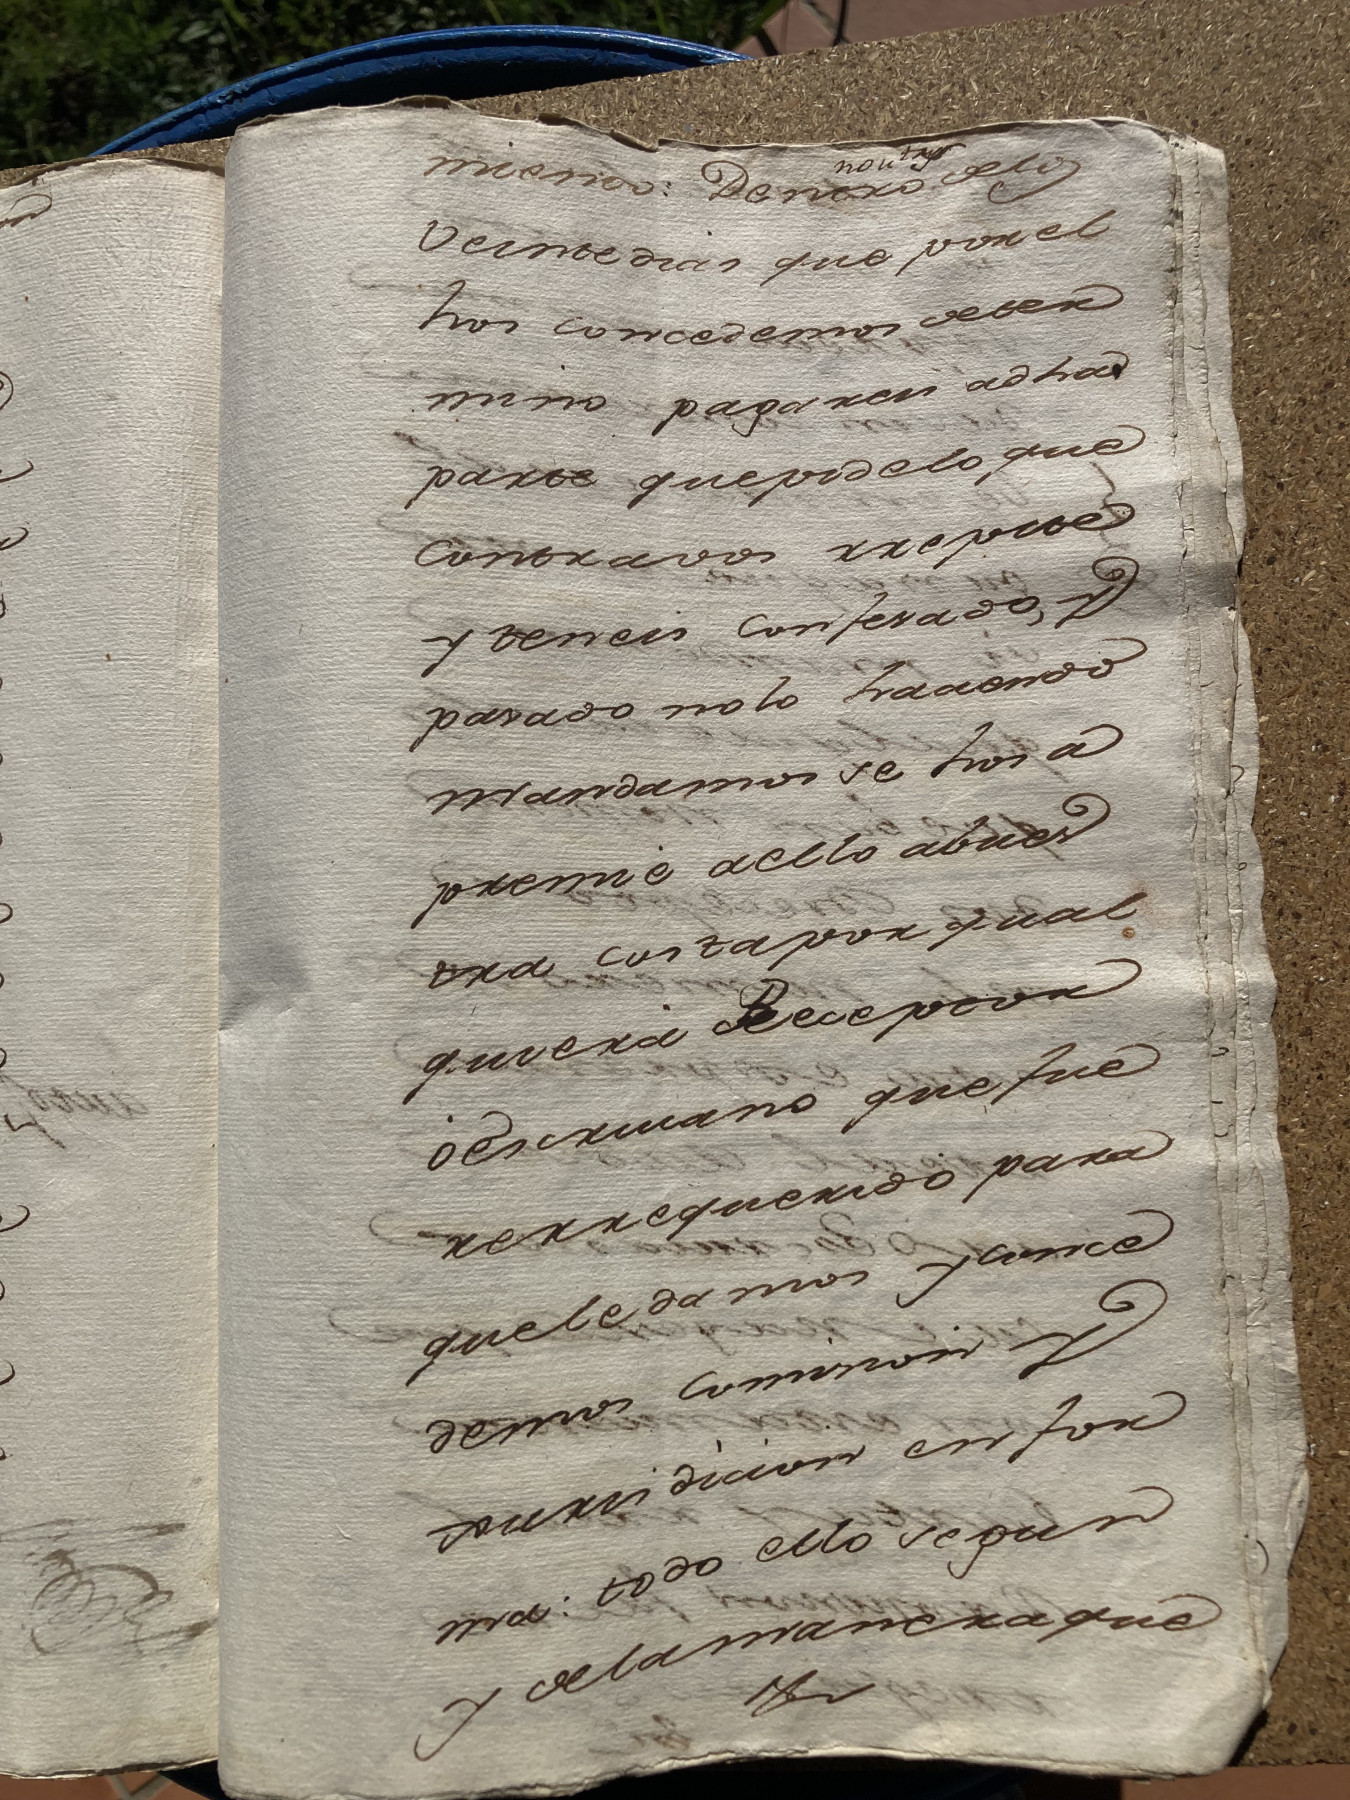 miento: Dentro de los
veinte dias que por el
hos concedemos de ter
mino pagareis adha
parte que pide lo que
contra vos rrepite
y teneis confesado, Y
pasado no lo haciendo
mandamos se hos a
premie a ello a bues
tra costa por qual
quiera Receptor
o escriuano que fue
re rrequerido para
que le damos y conce
demos comision Y
Jurisdicion en for
ma: todo ello segun
y de la manera que